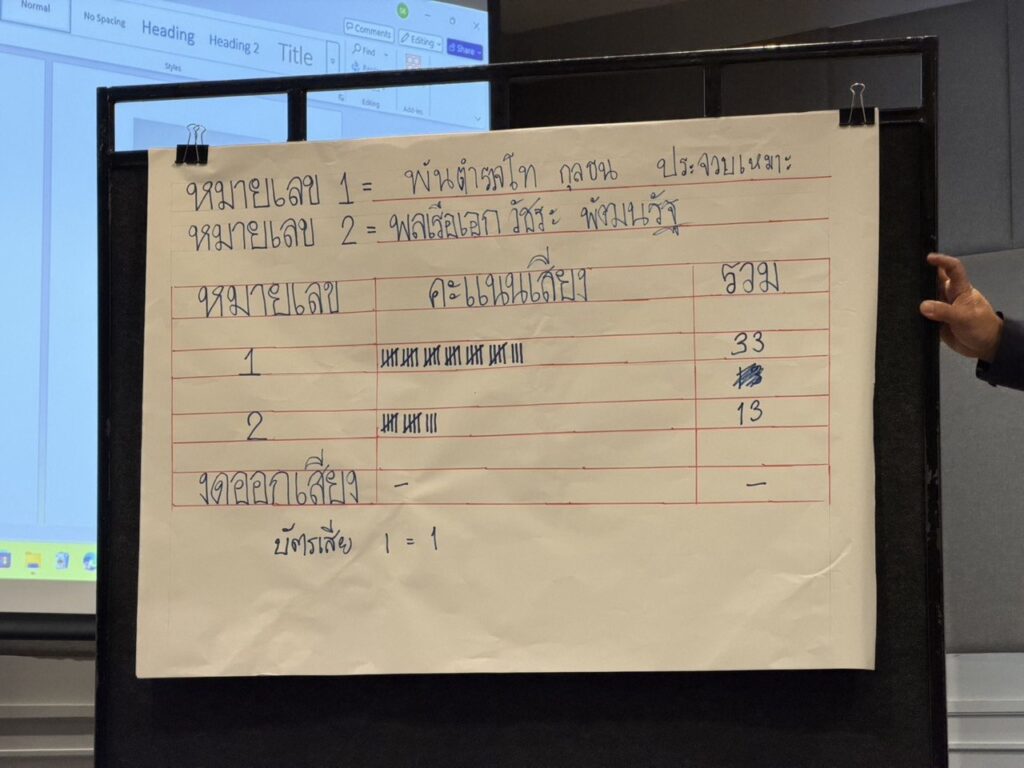 Normal No Spacing Heading Heading 2 Title
Styles
Comments Editing Share
Find
Editing
Add-ins
หมายเลข 1 = พันตำรวจโท กุลธน ประจวบเหมาะ
หมายเลข 2 = พลเรือเอก วัชระ พัฒนรัฐ
หมายเลข คะแนนเสียง รวม
1 33
2 13
งดออกเสียง - -
บัตรเสีย 1 = 1